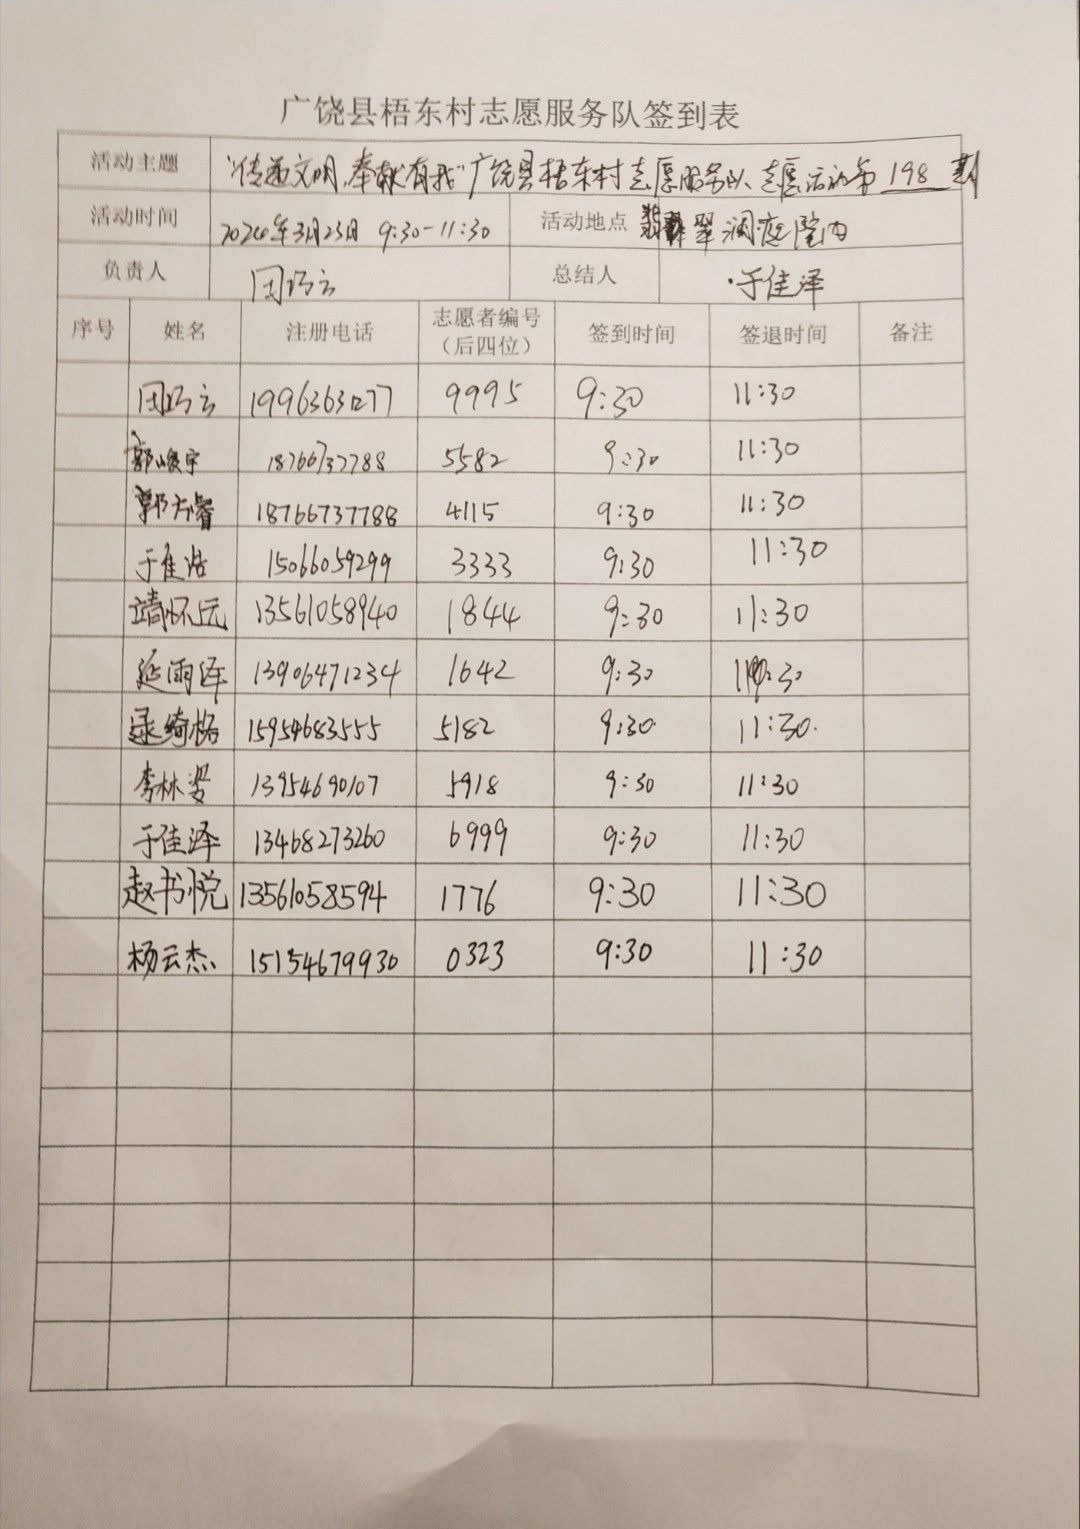 广饶县梧东村志愿服务队签到表
活动主题 “传递文明,奉献有我”广饶县梧东村志愿服务队志愿活动第 198 期
活动时间 2024年3月23日 9:30-11:30 活动地点 翡翠澜庭院内
负责人 国巧云 总结人 于佳泽
序号 姓名 注册电话 志愿者编号（后四位） 签到时间 签退时间 备注
国巧云 19963631277 9995 9:30 11:30
郭峻宇 18766737788 5582 9:30 11:30
郭方睿 18766737788 4115 9:30 11:30
于佳浩 15066059299 3333 9:30 11:30
靖怀远 13561058940 1844 9:30 11:30
延雨泽 13906471234 1642 9:30 11:30
绮格 15954683555 5182 9:30 11:30
李林 13954690107 5918 9:30 11:30
于佳泽 13468273260 6999 9:30 11:30
赵书悦 13561058594 1776 9:30 11:30
杨云杰 15154679930 0323 9:30 11:30